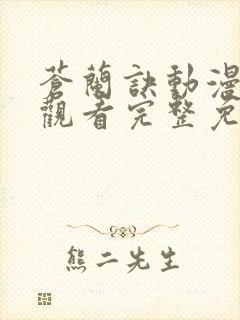 蒼蘭訣動漫
觀看完整免
熊二先生